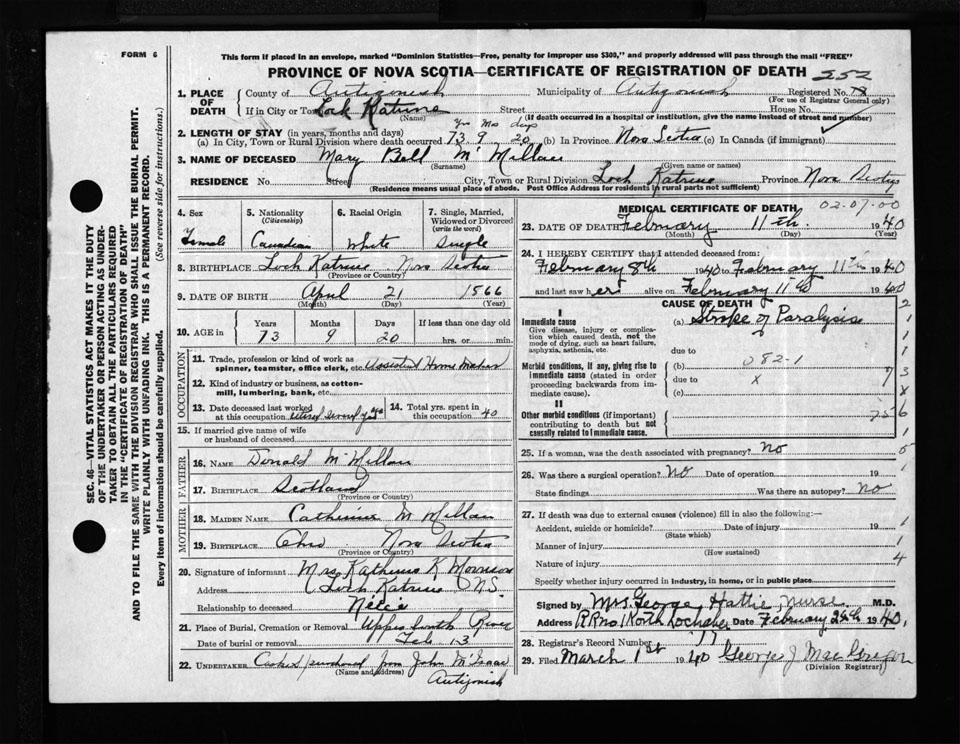 FORM 6
This form if placed in an envelope, marked "Dominion Statistics—Free, penalty for improper use $300," and properly addressed will pass through the mail "FREE"
PROVINCE OF NOVA SCOTIA—CERTIFICATE OF REGISTRATION OF DEATH 552
1. PLACE OF DEATH County of Antigonish Municipality of Antigonish Registered No.
(For use of Registrar General only)
If in City or Town Lock Katrine Street House No.
(Name) (If death occurred in a hospital or institution, give the name instead of street and number)
2. LENGTH OF STAY (in years, months and days) Yrs Mos days
(a) In City, Town or Rural Division where death occurred 73 9 20 (b) In Province Nova Scotia (c) In Canada (if immigrant)
3. NAME OF DECEASED Mary Bell McMillan
(Surname) (Given name or names)
RESIDENCE No. Street City, Town or Rural Division Loch Katrine Province Nova Scotia
(Residence means usual place of abode. Post Office Address for residents in rural parts not sufficient)
4. Sex 5. Nationality (Citizenship) 6. Racial Origin 7. Single, Married, Widowed or Divorced (write the word)
Female Canadian White Single
8. BIRTHPLACE Loch Katrine Nova Scotia
(Province or Country)
9. DATE OF BIRTH April 21 1866
(Month) (Day) (Year)
10. AGE in Years Months Days If less than one day old
73 9 20 hrs. or min.
OCCUPATION
11. Trade, profession or kind of work as spinner, teamster, office clerk, etc. Assisted Home Maker
12. Kind of industry or business, as cotton-mill, lumbering, bank, etc.
13. Date deceased last worked at this occupation retired several yrs
14. Total yrs. spent in this occupation 40
15. If married give name of wife or husband of deceased
FATHER
16. NAME Donald McMillan
17. BIRTHPLACE Scotland
(Province or Country)
MOTHER
18. MAIDEN NAME Catherine McMillan
19. BIRTHPLACE Ohio Nova Scotia
(Province or Country)
20. Signature of informant Mrs. Katherine K Morrison
Address Loch Katrine N.S.
Relationship to deceased Niece
21. Place of Burial, Cremation or Removal Upper South River
Date of burial or removal Feb 13
22. UNDERTAKER Casket purchased from John McIsaac
(Name and address) Antigonish
MEDICAL CERTIFICATE OF DEATH
02-07-00
23. DATE OF DEATH February 11th 1940
(Month) (Day) (Year)
24. I HEREBY CERTIFY that I attended deceased from:
February 8th 1940 to February 11th 1940
and last saw her alive on February 11th 1940
CAUSE OF DEATH
I
Immediate cause (a) Stroke of Paralysis
Give disease, injury or complication which caused death, not the mode of dying, such as heart failure, asphyxia, asthenia, etc.
due to
Morbid conditions, if any, giving rise to immediate cause (stated in order proceeding backwards from immediate cause).
(b) 082-1
due to x
(c)
II
Other morbid conditions (if important) contributing to death but not causally related to immediate cause.
25. If a woman, was the death associated with pregnancy? No
26. Was there a surgical operation? No Date of operation 19
State findings Was there an autopsy? No
27. If death was due to external causes (violence) fill in also the following:—
Accident, suicide or homicide? Date of injury 19
(State which)
Manner of injury
(How sustained)
Nature of injury
Specify whether injury occurred in industry, in home, or in public place
Signed by Mrs. George Hattie, Nurse M.D.
Address R.R. No 1 North Lochaber Date February 28th 1940.
28. Registrar's Record Number
29. Filed March 1st 1940 George J MacGregor
(Division Registrar)
SEC. 46—VITAL STATISTICS ACT MAKES IT THE DUTY
OF THE UNDERTAKER OR PERSON ACTING AS UNDER-
TAKER TO OBTAIN ALL THE PARTICULARS REQUIRED
IN THE "CERTIFICATE OF REGISTRATION OF DEATH"
AND TO FILE THE SAME WITH THE DIVISION REGISTRAR WHO SHALL ISSUE THE BURIAL PERMIT.
WRITE PLAINLY WITH UNFADING INK. THIS IS A PERMANENT RECORD.
Every item of information should be carefully supplied. (See reverse side for instructions.)